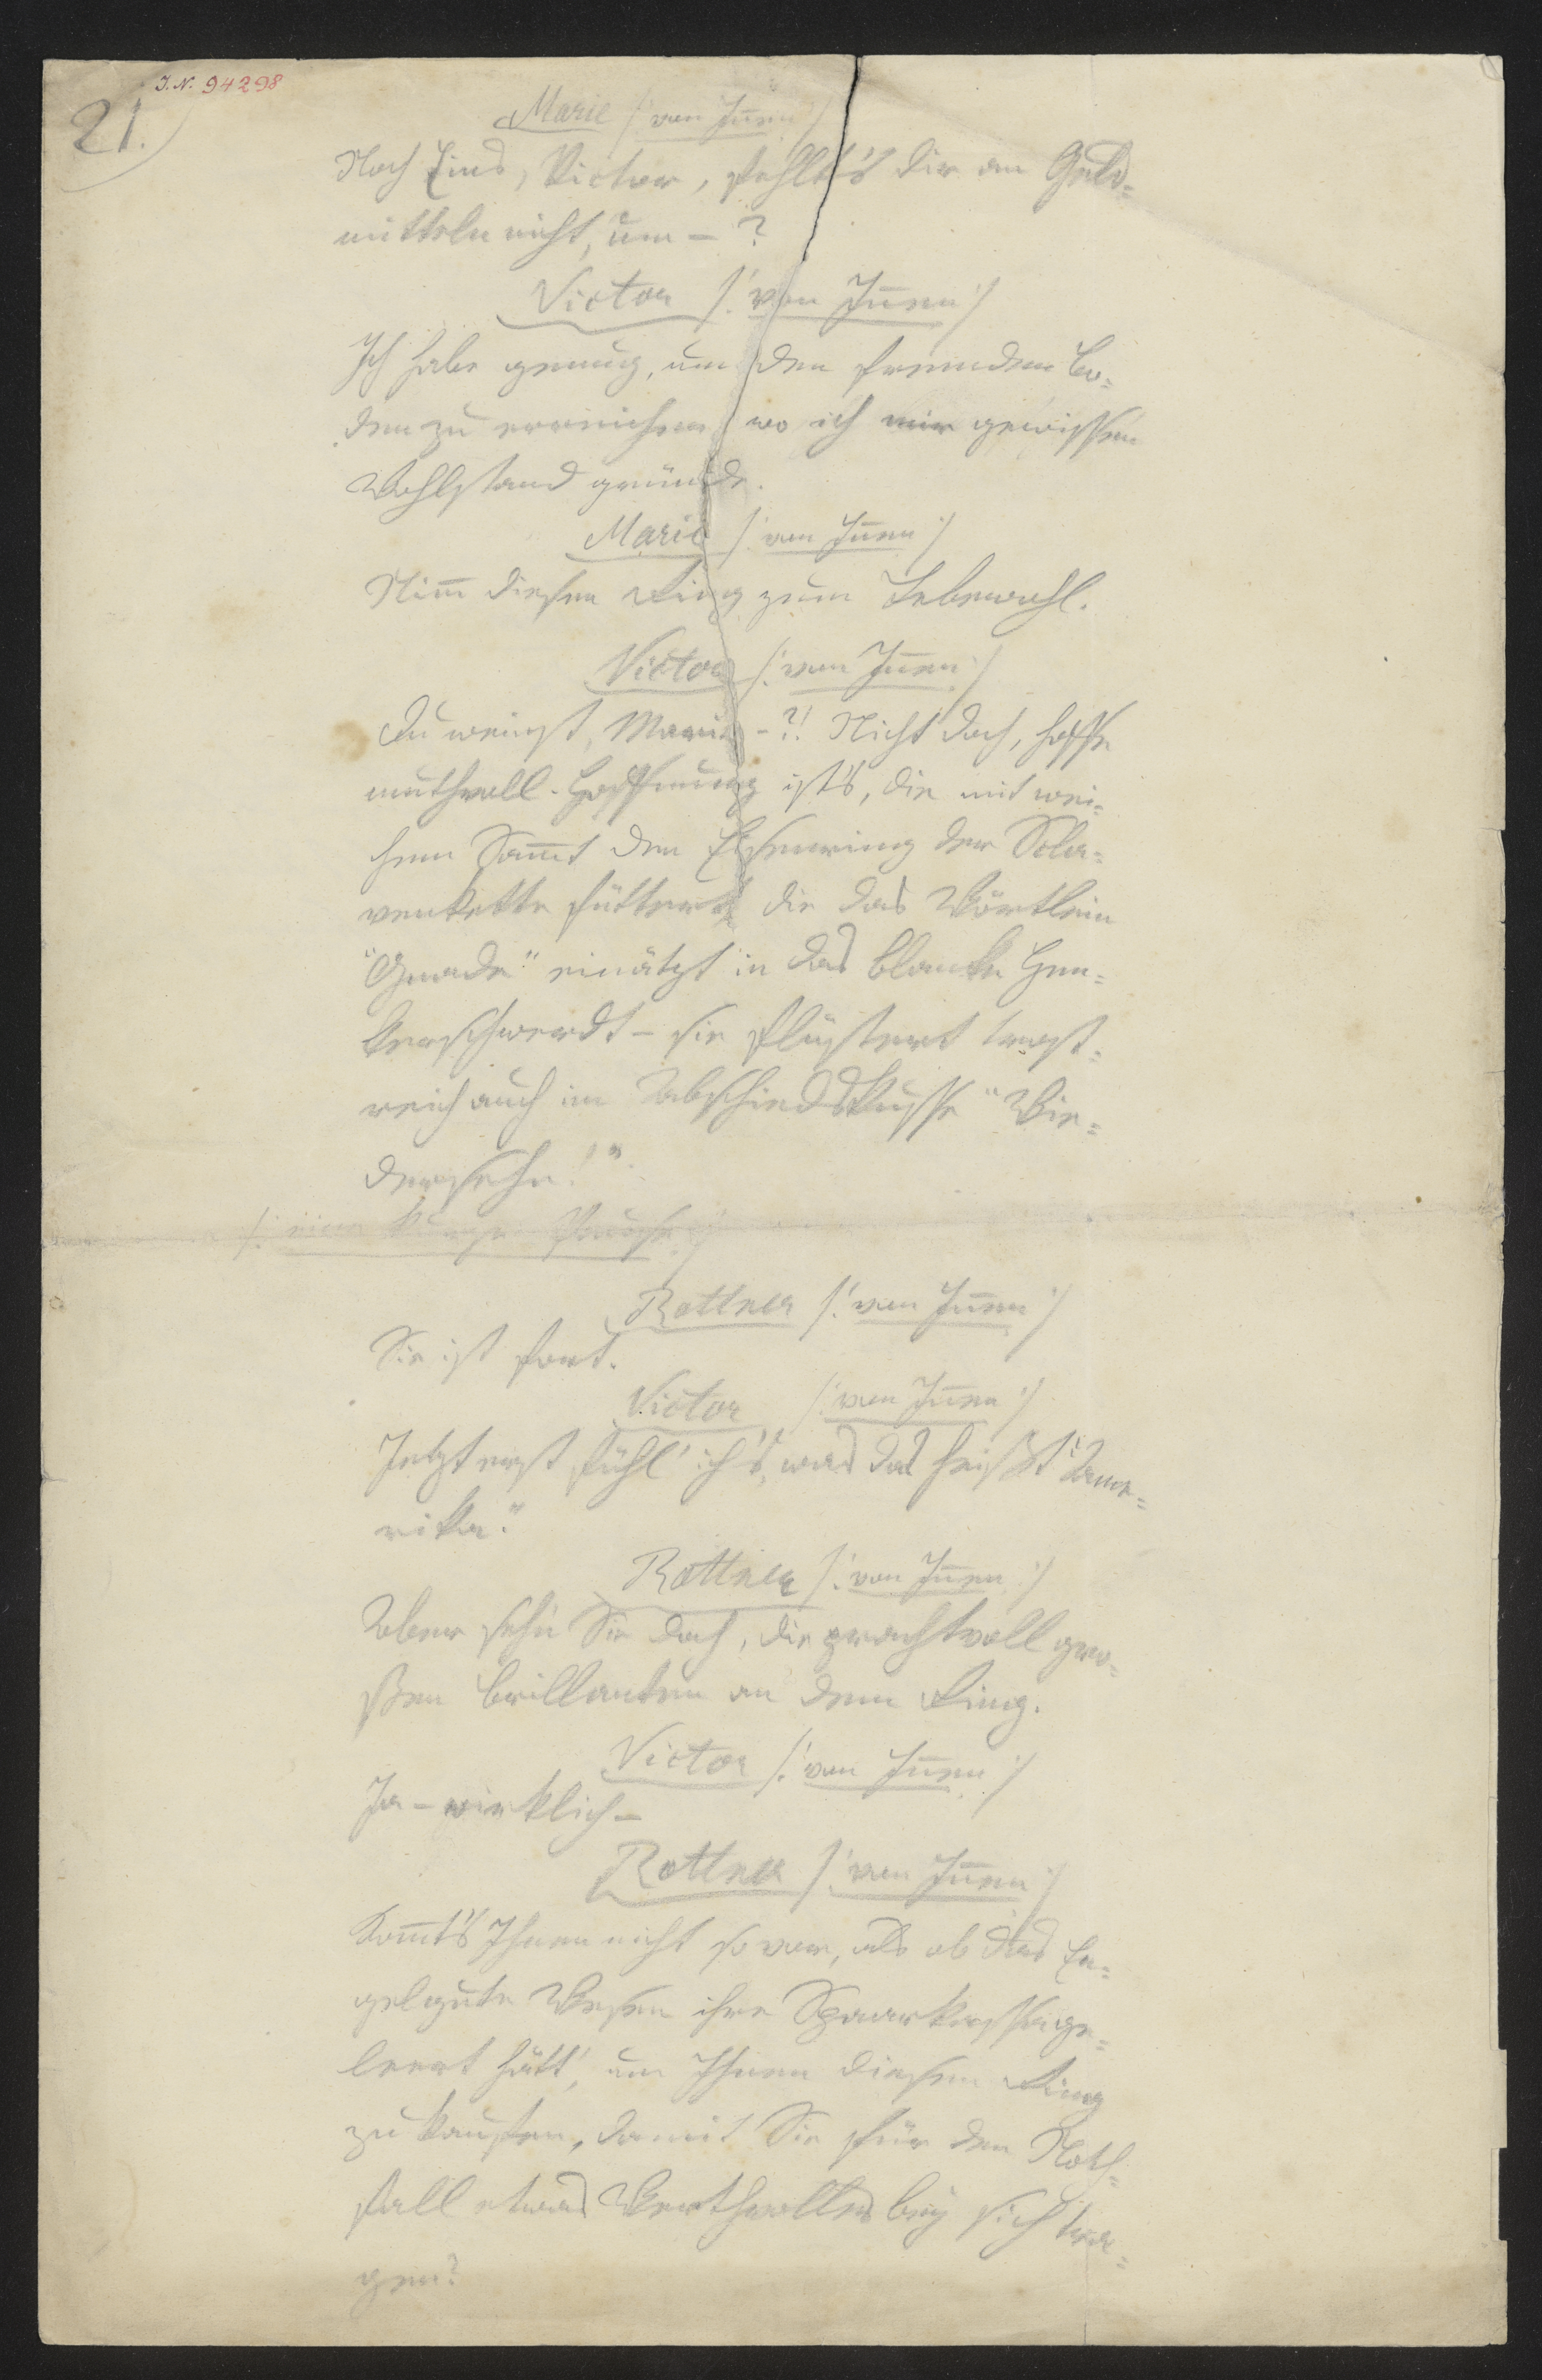 I.N. 94298
21.)
Marie /: von Iñen :/
Noch Eins, Victor, fehlt's dir an Geld=
mitteln nicht, um – ?
Victor /: von Iñen :/
Ich habe genug, um den fremden Bo=
den zu erreichen, wo ich mir gewissen
Wohlstand gründe.
Marie /: von Iñen :/
Nim̅ diesen Ring zum Lebewohl.
Victor /: von Iñen :/
Du weinst, Marie –?! Nicht doch, hoffe
muthvoll. Hoffnung ist's, die mit wei=
chem Sam̅t den Eisenring der Scla=
venkette füttert, die das Wörtlein
"Gnade" einätzt in das blanke Hen=
kerschwerdt – sie flüstert trost=
reich auch im Abschiedskusse "Wie=
dersehn!"
/: eine kurze Pause :/
Rottner /: von Iñen :/
Sie ist fort.
Victor /: von Iñen :/
Jetzt erst fühl' ich's, was das heißt "Ame=
rika."
Rottner /: von Iñen :/
Aber sehn Sie doch, die prachtvoll gro=
ßen Brillanten an dem Ring.
Victor /: von Iñen :/
Ja – wirklich –
Rottner /: von Iñen :/
Kom̅t's Ihnen nicht so vor, als ob das En=
gelgute Wesen ihre Sparkasse ge=
leert hätt', um Ihnen diesen Ring
zu kaufen, damit Sie für den Noth=
fall etwas Werthvolles bey sich tra=
gen?